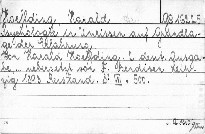 Hoeffding, Harald
Psychologie in Umrissen auf Grundla-
ge der Erfahrung.
Von Harald Hoeffding. 2 deut. Ausga-
be, übersetzt von F. Bendixen Leip-
zig 1893 Reisland. 8° VI + 500.